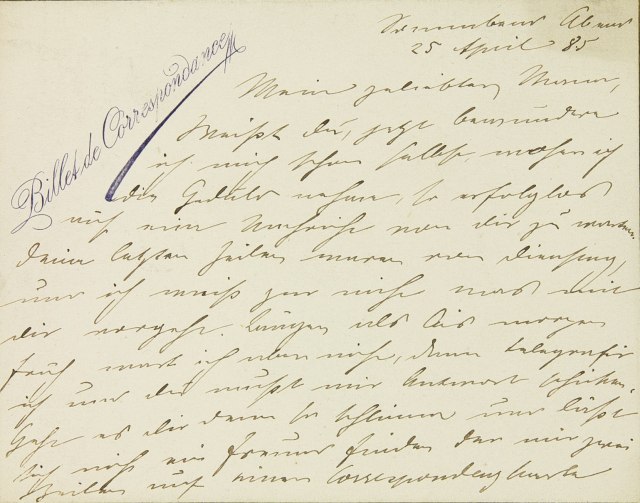 Sonnabend Abend
25 April 85
Billet de Correspondance
Mein geliebter Mann,
Weißt du, jetzt bewundere
ich mich schon selbst, woher ich
die Geduld nehme, so erfolglos
auf eine Nachricht von dir zu warten.
Deine letzten Zeilen waren von Dienstag,
und ich weiß gar nicht was mit
dir vorgeht. Länger als bis morgen
früh wart ich aber nicht, dann telegrafir
ich und du mußt mir Antwort schicken.
Geht es dir denn so schlimm und läßt
sich nicht ein Freund finden der mir zwei
Zeilen auf einer Correspondenzkarte